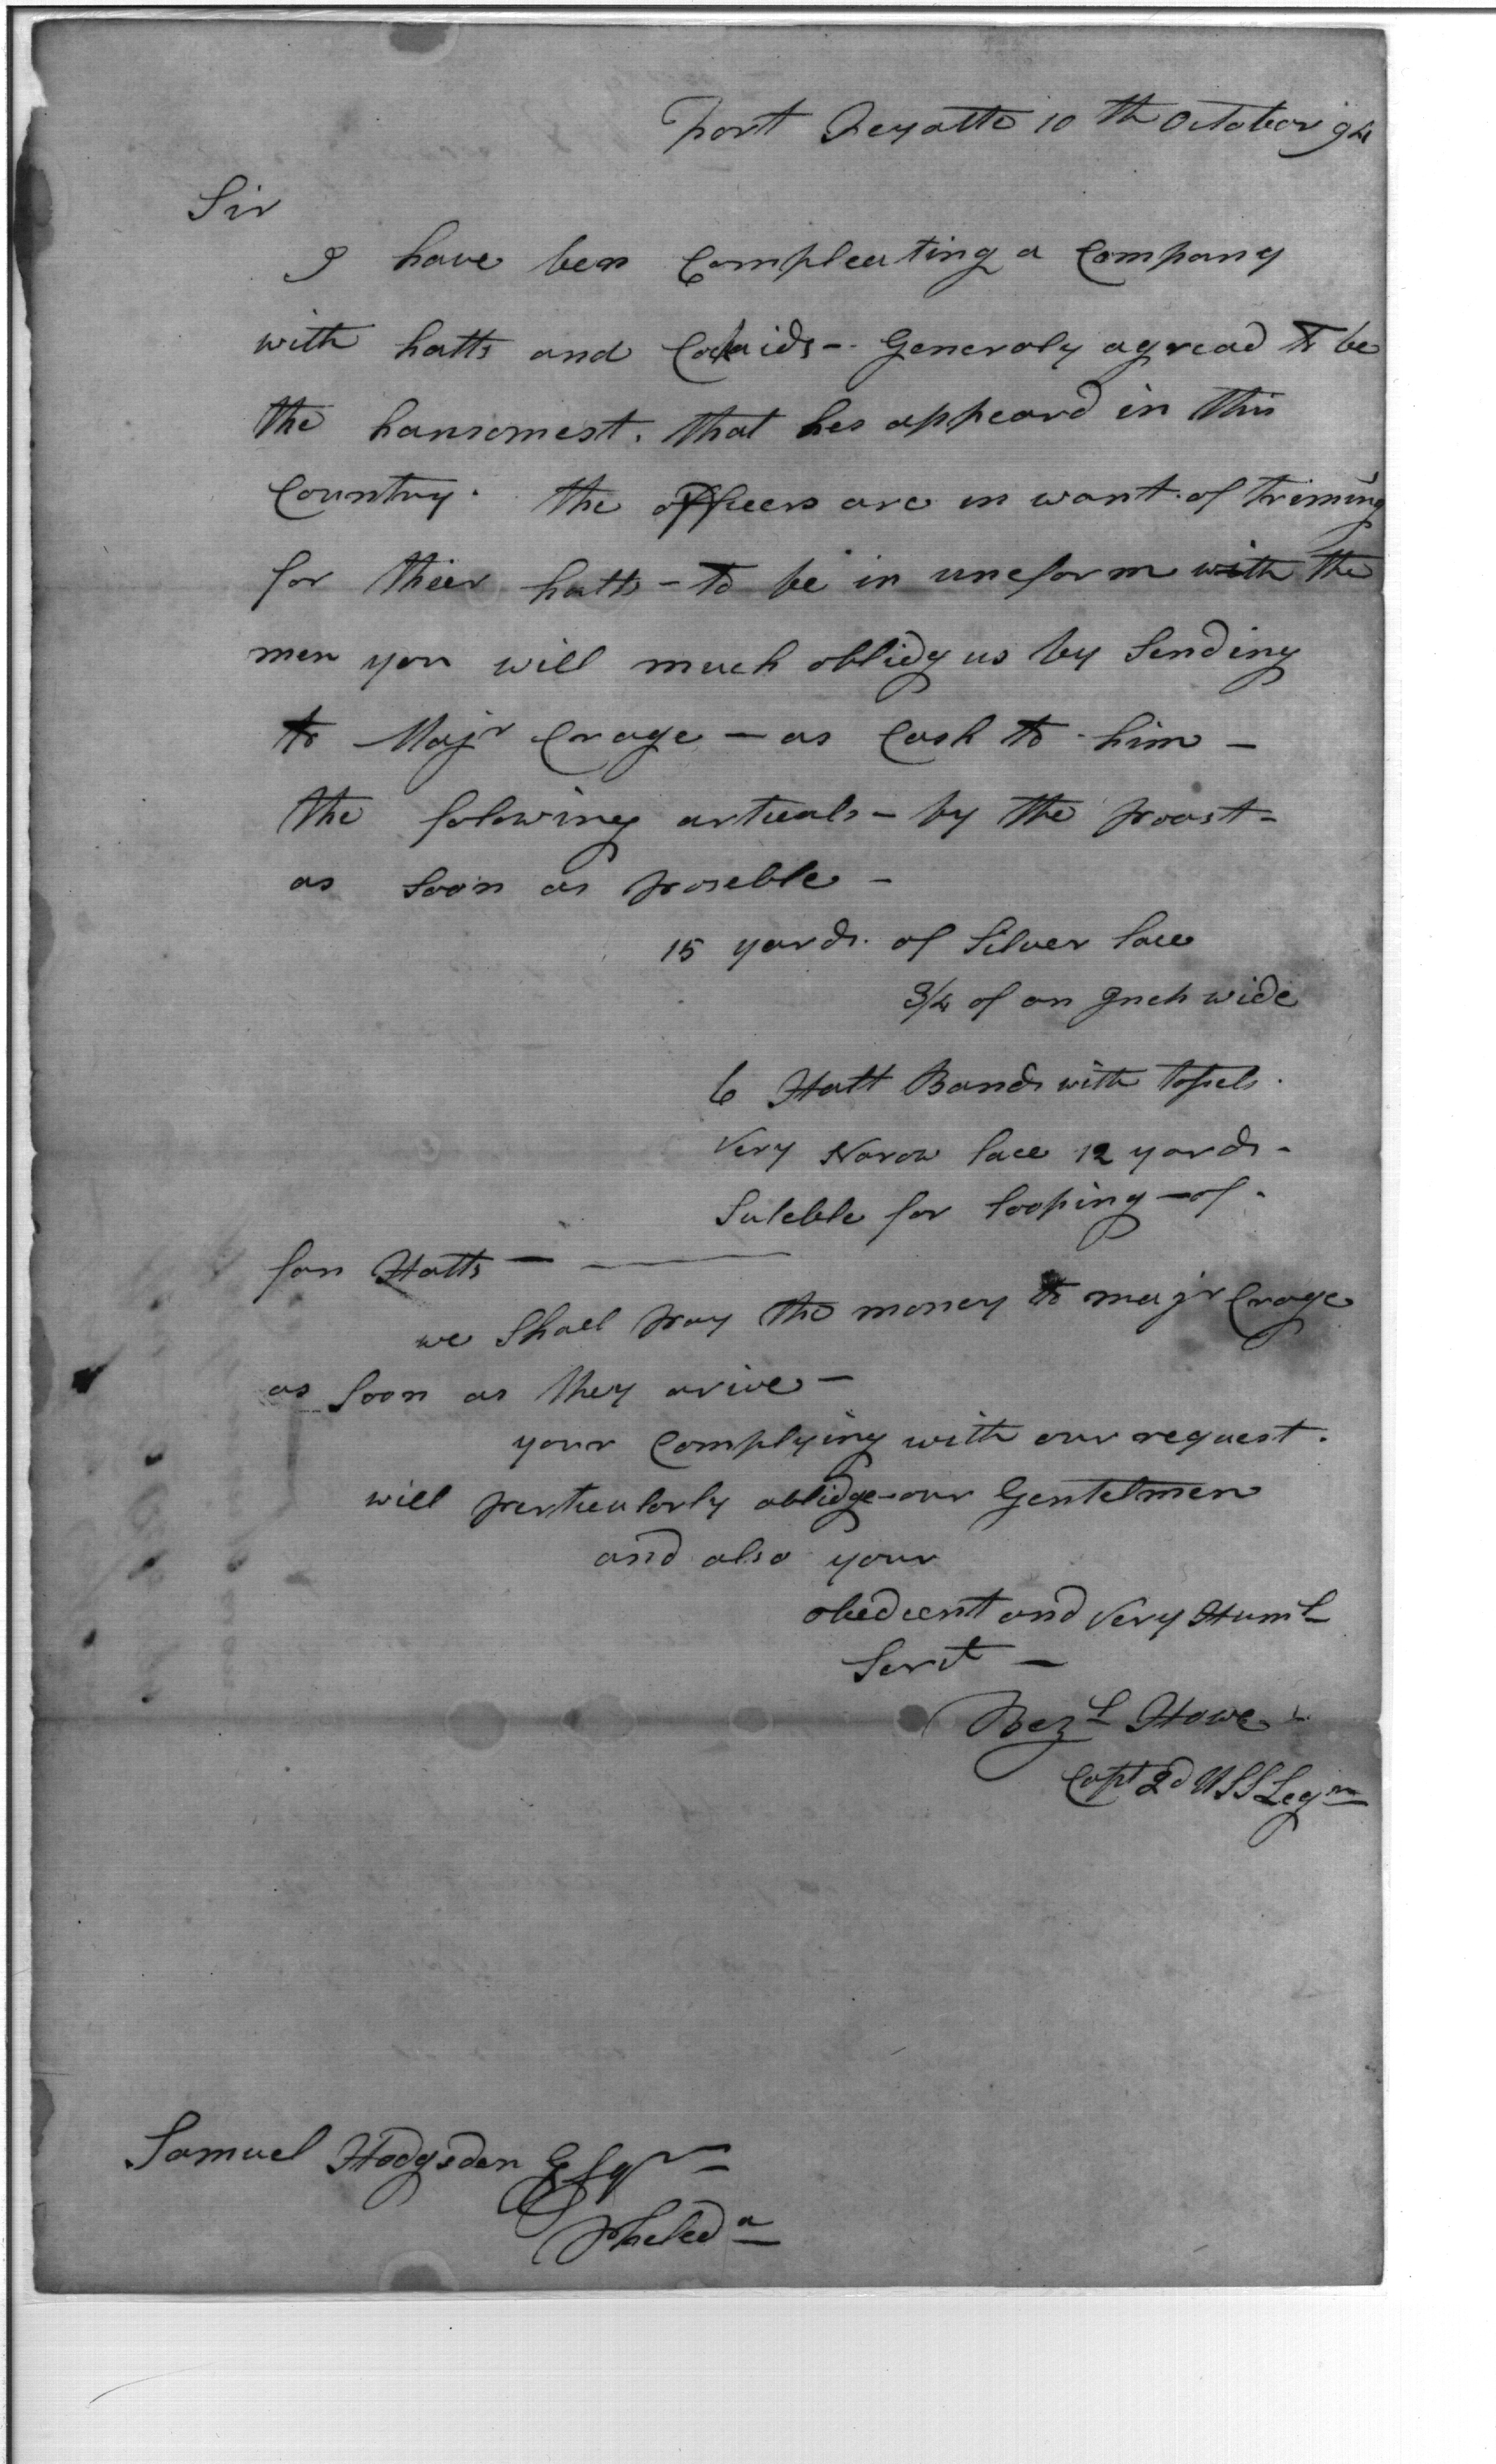 Fort Feyatte 10th October 94
Sir
I have ben Compleating a Company
with hatts and Cockaids - Generaly agread to be
the hansomest. that hes appeard in this
Country. the officers are in want of triming
for thier hatts - to be in uneform with the
men you will much oblidg us by Sending
to Majr Crage - as Cash to him -
the folowing articals - by the poast -
as Soon as poseble -
15 yards of Silver lace
3/4 of an Inch wide
6 Hatt Bands with tossels.
Very Narow lace 12 yards -
Suteble for looping - of -
for Hatts -
we Shall pay the money to majr Crage
as Soon as they arive -
your Complying with our request.
will perticularly oblidge our Gentelmen
and also your
obedient and Very Huml
Servt -
Bezl Howe
Capt 2d USS Legn
Samuel Hodgsdon Esqr
Pheleda